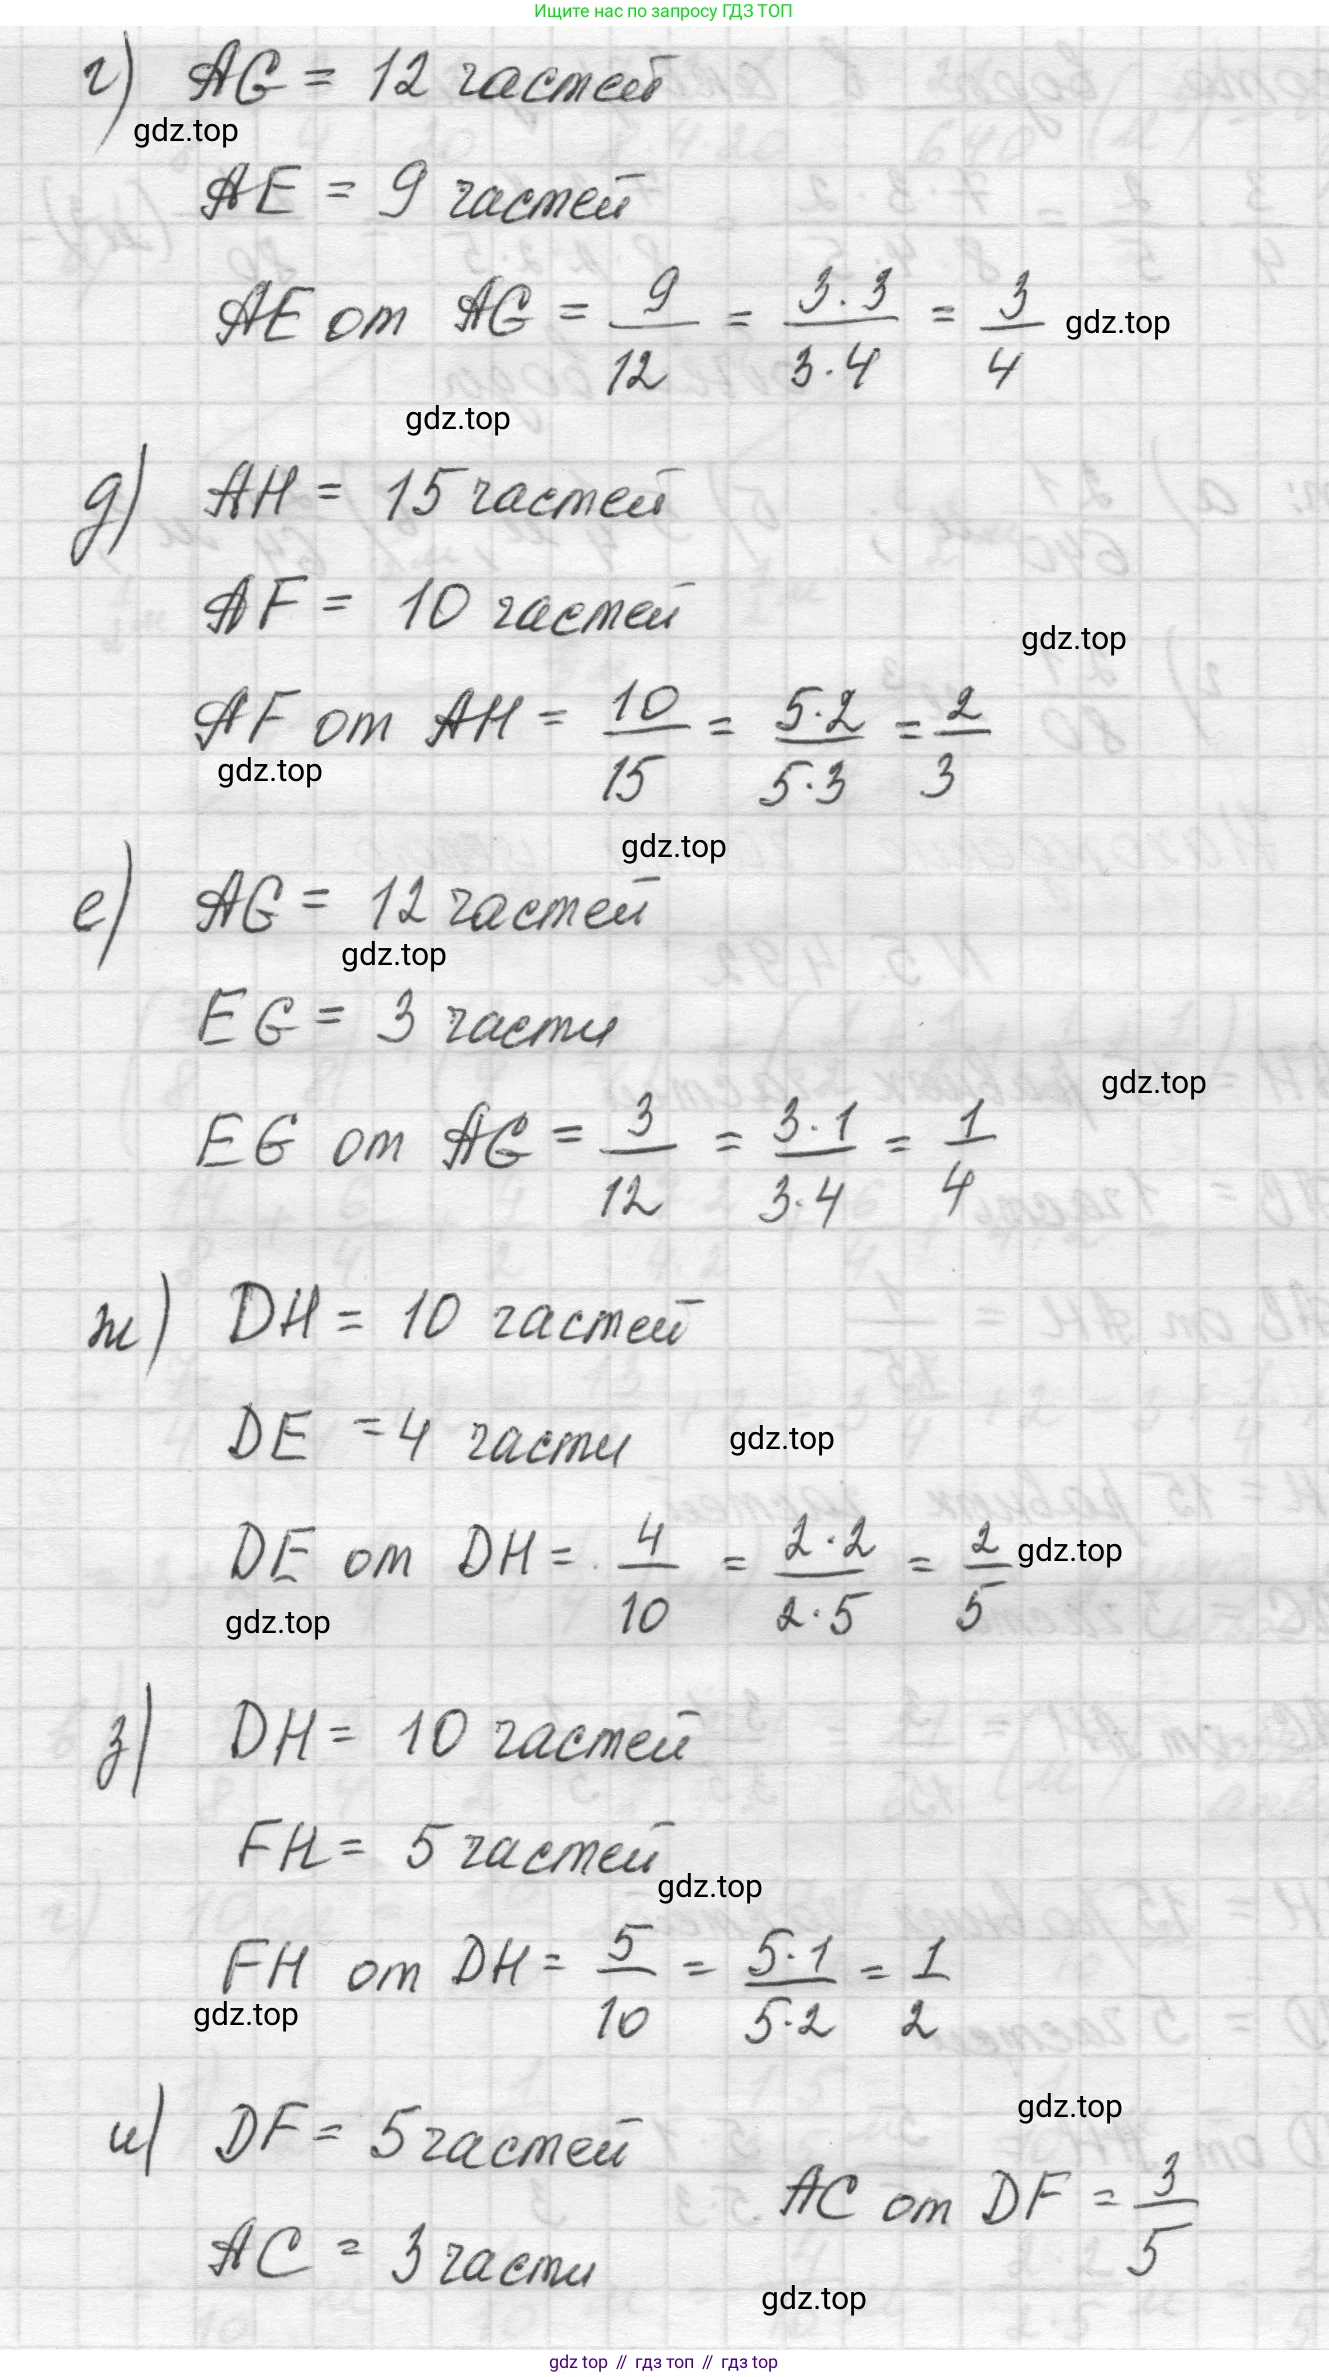 Ищите нас по запросу ГДЗ ТОП
г) AG = 12 частей
gdz.top
AE = 9 частей
AE от AG = 9/12 = 3·3/3·4 = 3/4 gdz.top
gdz.top
д) AH = 15 частей
AF = 10 частей
gdz.top
AF от AH = 10/15 = 5·2/5·3 = 2/3
gdz.top
gdz.top
е) AG = 12 частей
gdz.top
EG = 3 части
gdz.top
EG от AG = 3/12 = 3·1/3·4 = 1/4
ж) DH = 10 частей
DE = 4 части
gdz.top
DE от DH = 4/10 = 2·2/2·5 = 2/5 gdz.top
gdz.top
з) DH = 10 частей
FH = 5 частей
gdz.top
FH от DH = 5/10 = 5·1/5·2 = 1/2
gdz.top
gdz.top
и) DF = 5 частей
AC от DF = 3/5
AC = 3 части
gdz.top
gdz top // гдз топ // гдз top